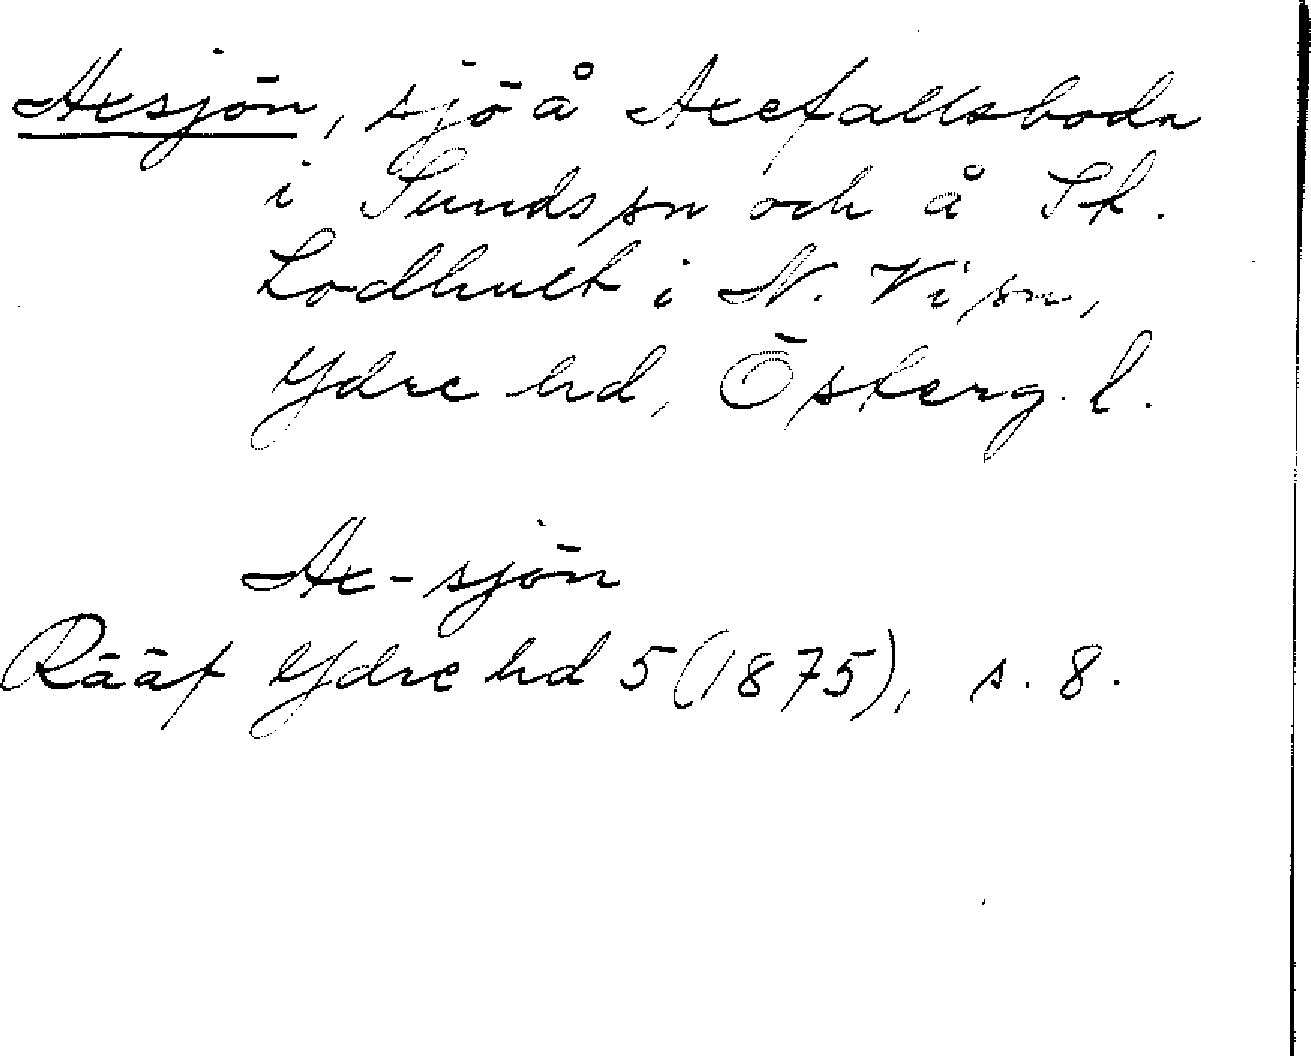 Axsjön, sjö å Axefallsboda
i Sunds sn och å St.
Lodhult i N. Vi sn,
Ydre hd, Österg. l.
Ax-sjön
Rääf Ydre hd 5 (1875), s. 8.